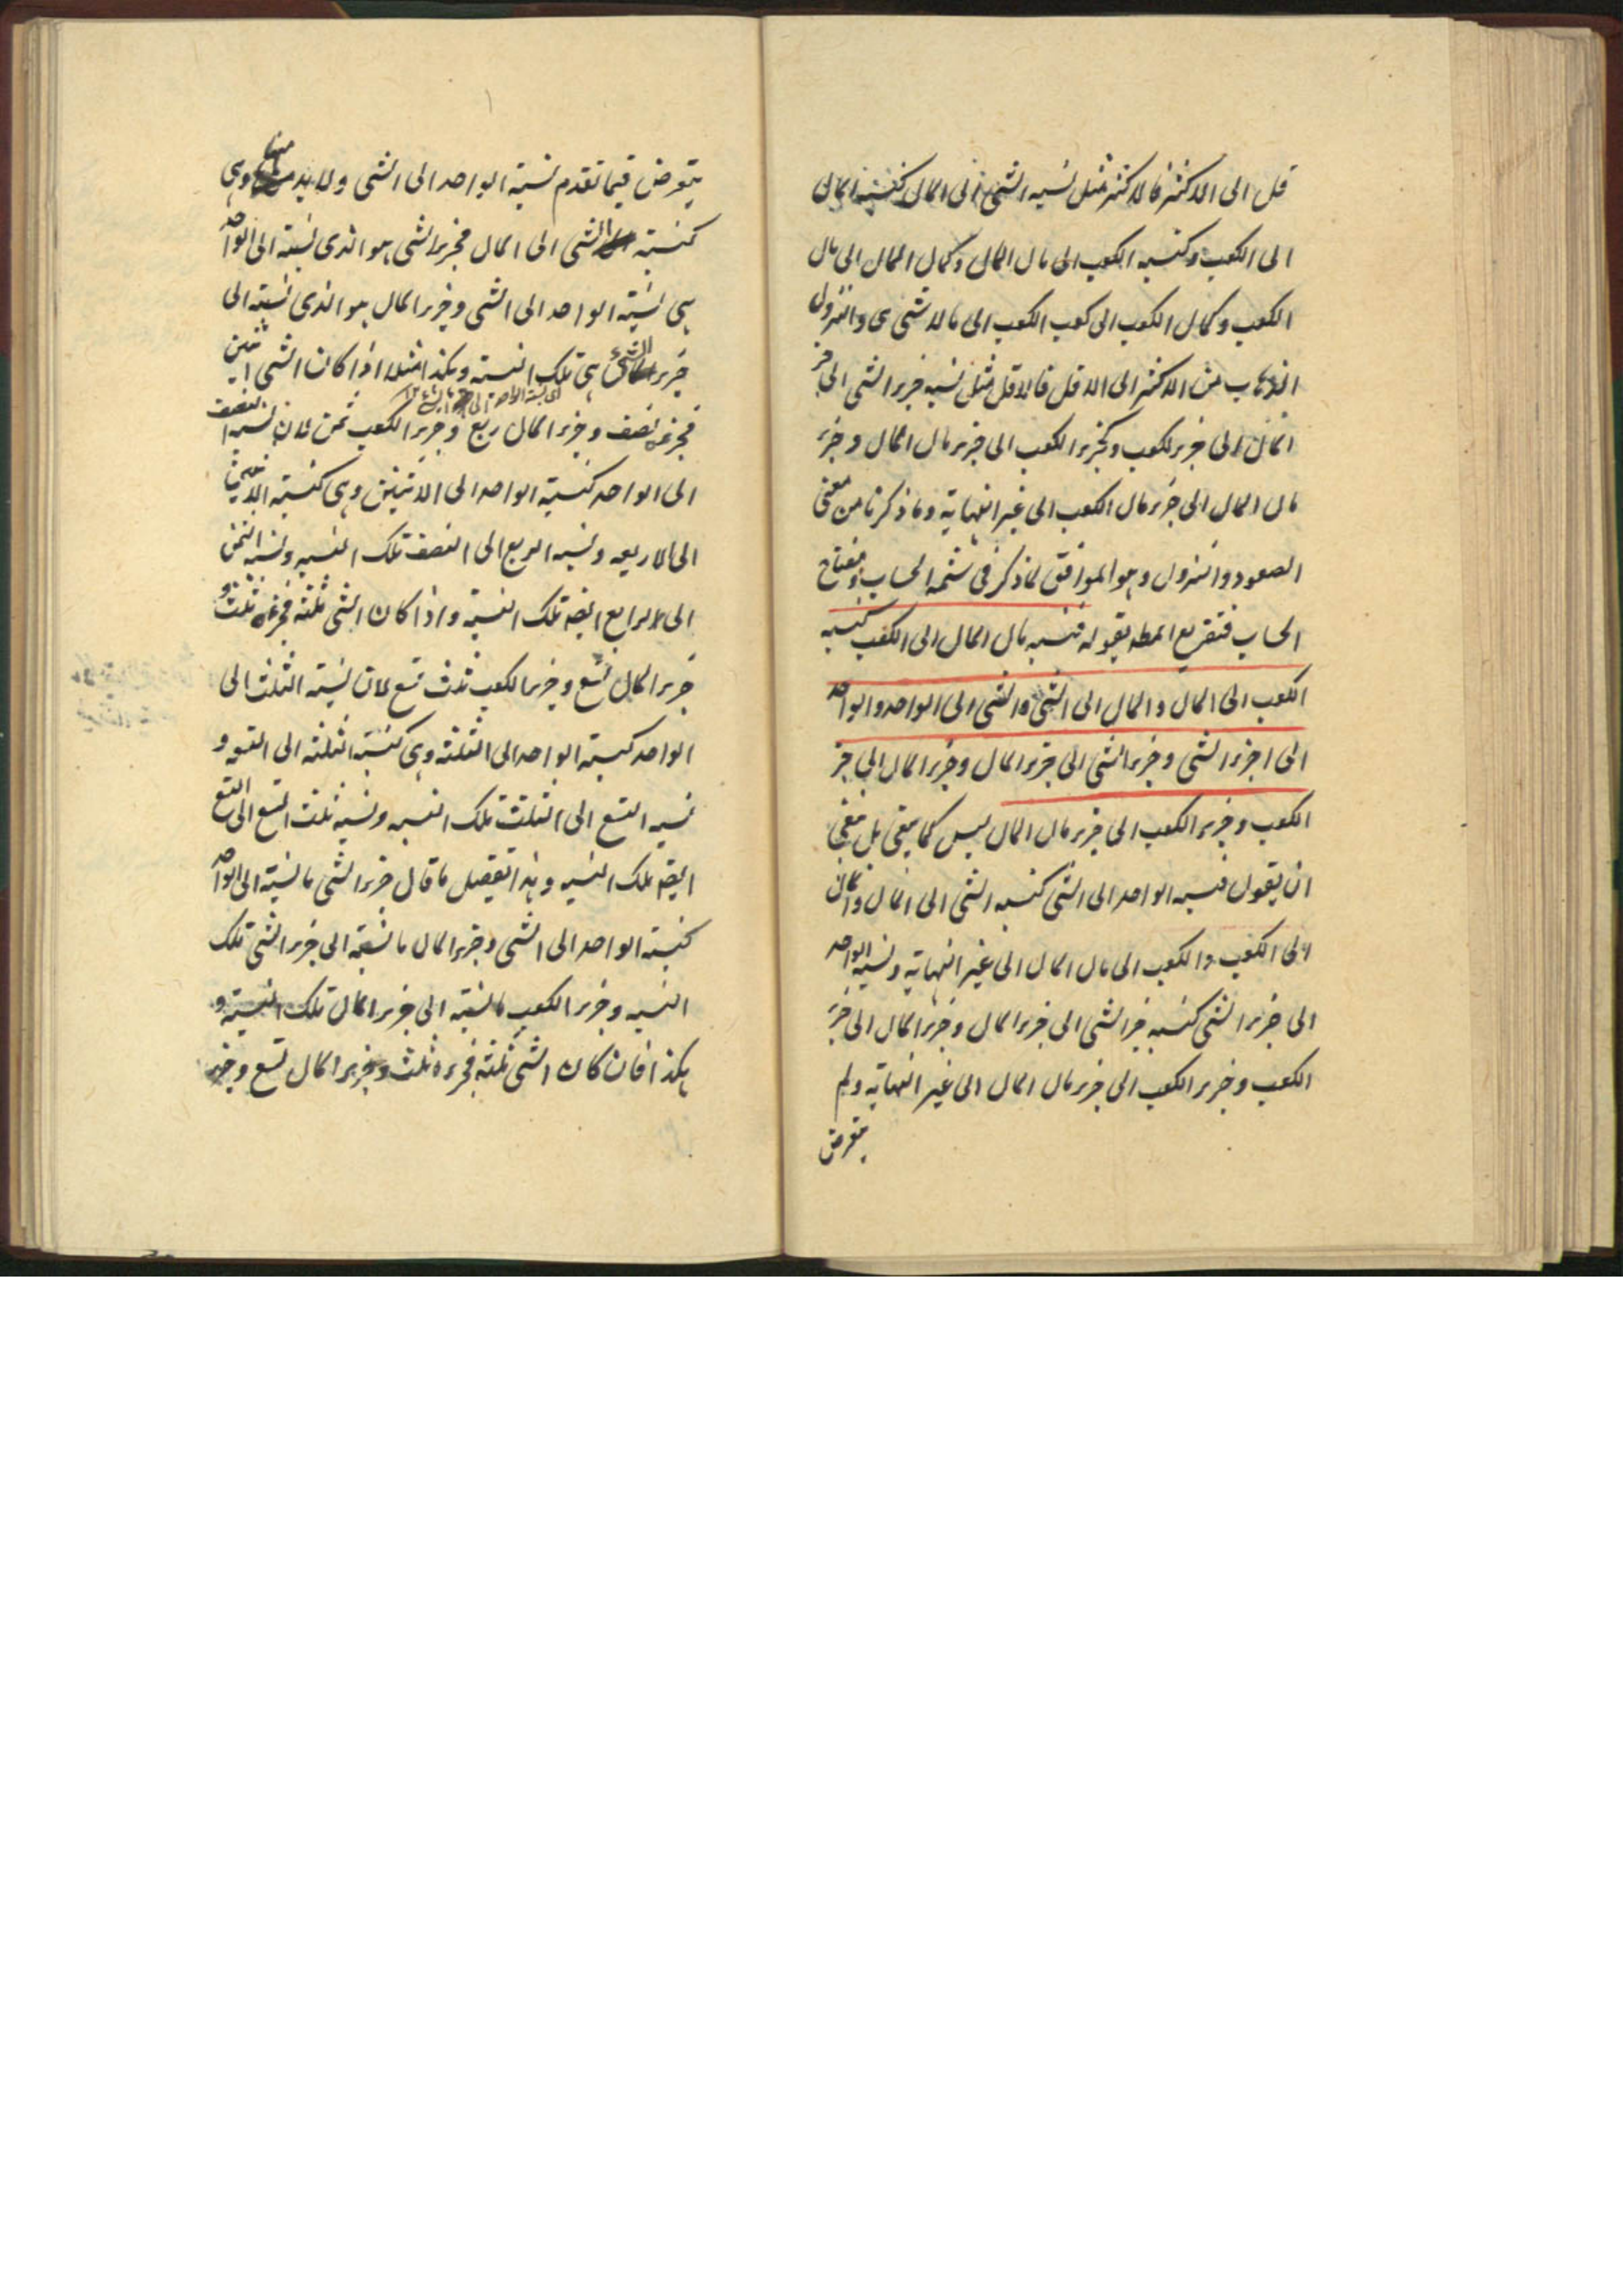 قل الى الاكثر فالاكثر مثل نسبه الشئ الى المال كنسبة المال
الى الكعب وكنسبه الكعب الى مال المال وكمال المال الى مال
الكعب وكمال الكعب الى كعب الكعب الى مالا يتناهى والنزول
الذهاب من الاكثر الى الاقل فالاقل مثل نسبه جزء الشئ الى جزء
المال الى جزء الكعب وكجزء الكعب الى جزء مال المال وجزء
مال المال الى جزء مال الكعب الى غير النهاية وما ذكرنا من معنى
الصعود والنزول وهو الموافق لما ذكر فى شمسه الحساب ومفتاح
الحساب فتفريع المط بقوله فنسبه مال المال الى الكعب كنسبه
الكعب الى المال والمال الى الشئ والشئ الى الواحد والواحد
الى اجزء الشئ وجزء الشئ الى جزء المال وجزء المال الى جزء
الكعب وجزء الكعب الى جزء مال المال ليس كما ينبغى بل ينبغى
ان يقول نسبه الواحد الى الشئ كنسبه الشئ الى المال والمال
الى الكعب والكعب الى مال المال الى غير النهاية ونسبه الواحد
الى جزء الشئ كنسبه جزء الشئ الى جزء المال وجزء المال الى جزء
الكعب وجزء الكعب الى جزء مال المال الى غير النهاية ولم
يتعرض
يتعرض فيما تقدم نسبة الواحد الى الشئ ولابد منها وهى
كنسبة الشئ الى المال فجزء الشئ هو الذى نسبته الى الواحد
هى نسبة الواحد الى الشئ وجزء المال هو الذى نسبته الى
جزء الشئ هى تلك النسبة وهكذا مثلا اذا كان الشئ اثنين
اى نسبة الواحد الى الشئ ١٢
فجزءه نصف وجزء المال ربع وجزء الكعب ثمن لان نسبة النصف
الى الواحد كنسبة الواحد الى الاثنين وهى كنسبة الاثنين
الى الاربعه ونسبه الربع الى النصف تلك النسبه ونسبه الثمن
الى الربع ايضا تلك النسبة واذا كان الشئ ثلثة فجزءه ثلث و
جزء المال تسع وجزء الكعب ثلث تسع لان نسبة الثلث الى
الواحد كنسبة الواحد الى الثلثة وهى كنسبة الثلثه الى التسعه و
نسبه التسع الى الثلث تلك النسبه ونسبه ثلث التسع الى التسع
ايضا تلك النسبه وهذا تفصيل ما قال جزء الشئ ما نسبته الى الواحد
كنسبة الواحد الى الشئ وجزء المال ما نسبته الى جزء الشئ تلك
النسبه وجزء الكعب ما نسبته الى جزء المال تلك النسبة و
هكذا فان كان الشئ ثلثه فجزءه ثلث وجزء المال تسع وجزء